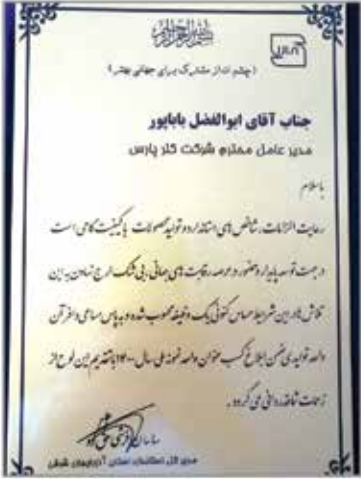 بسم الله الرحمن الرحیم
(چشم انداز مشترک برای جهانی بهتر)
جناب آقای ابوالفضل باباپور
مدیر عامل محترم شرکت کلر پارس
باسلام
رعایت الزامات، شاخص های استاندارد و تولید محصولات با کیفیت گامی است
در جهت توسعه پایدار و حضور در عرصه رقابت های جهانی، بی شک ارج نهادن به این
تلاش ها در این شرایط حساس کنونی یک وظیفه محسوب شده و به پاس مساعی وافر آن
واحد تولیدی ضمن ابلاغ کسب عنوان واحد نمونه ملی سال ۱۴۰۰ با تقدیم این لوح از
زحمات شما قدردانی می گردد.
مدیر کل استاندارد استان آذربایجان شرقی